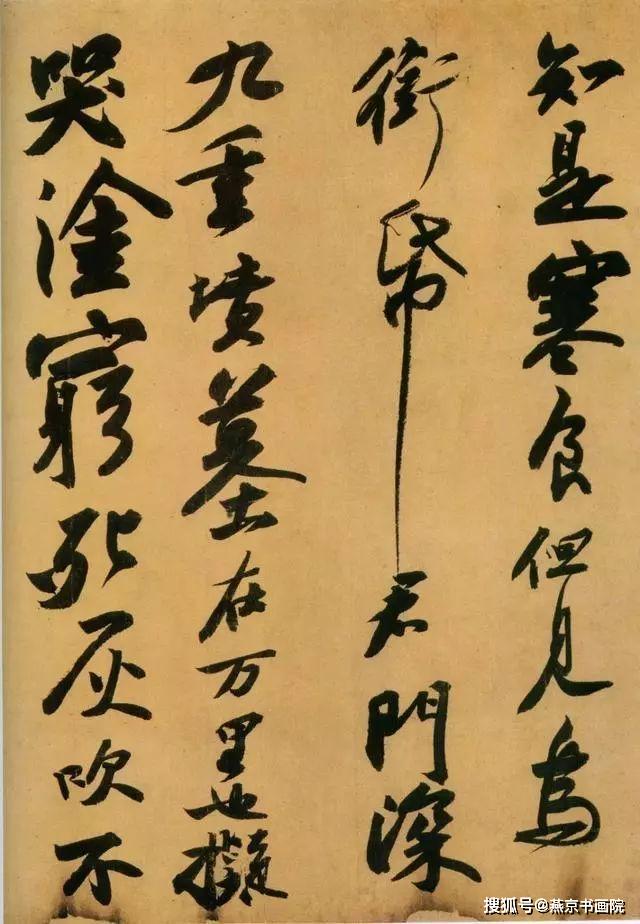 知是寒食但見烏
銜帋君門深
九重墳墓在万里也擬
哭塗窮死灰吹不
搜狐号@燕京书画院